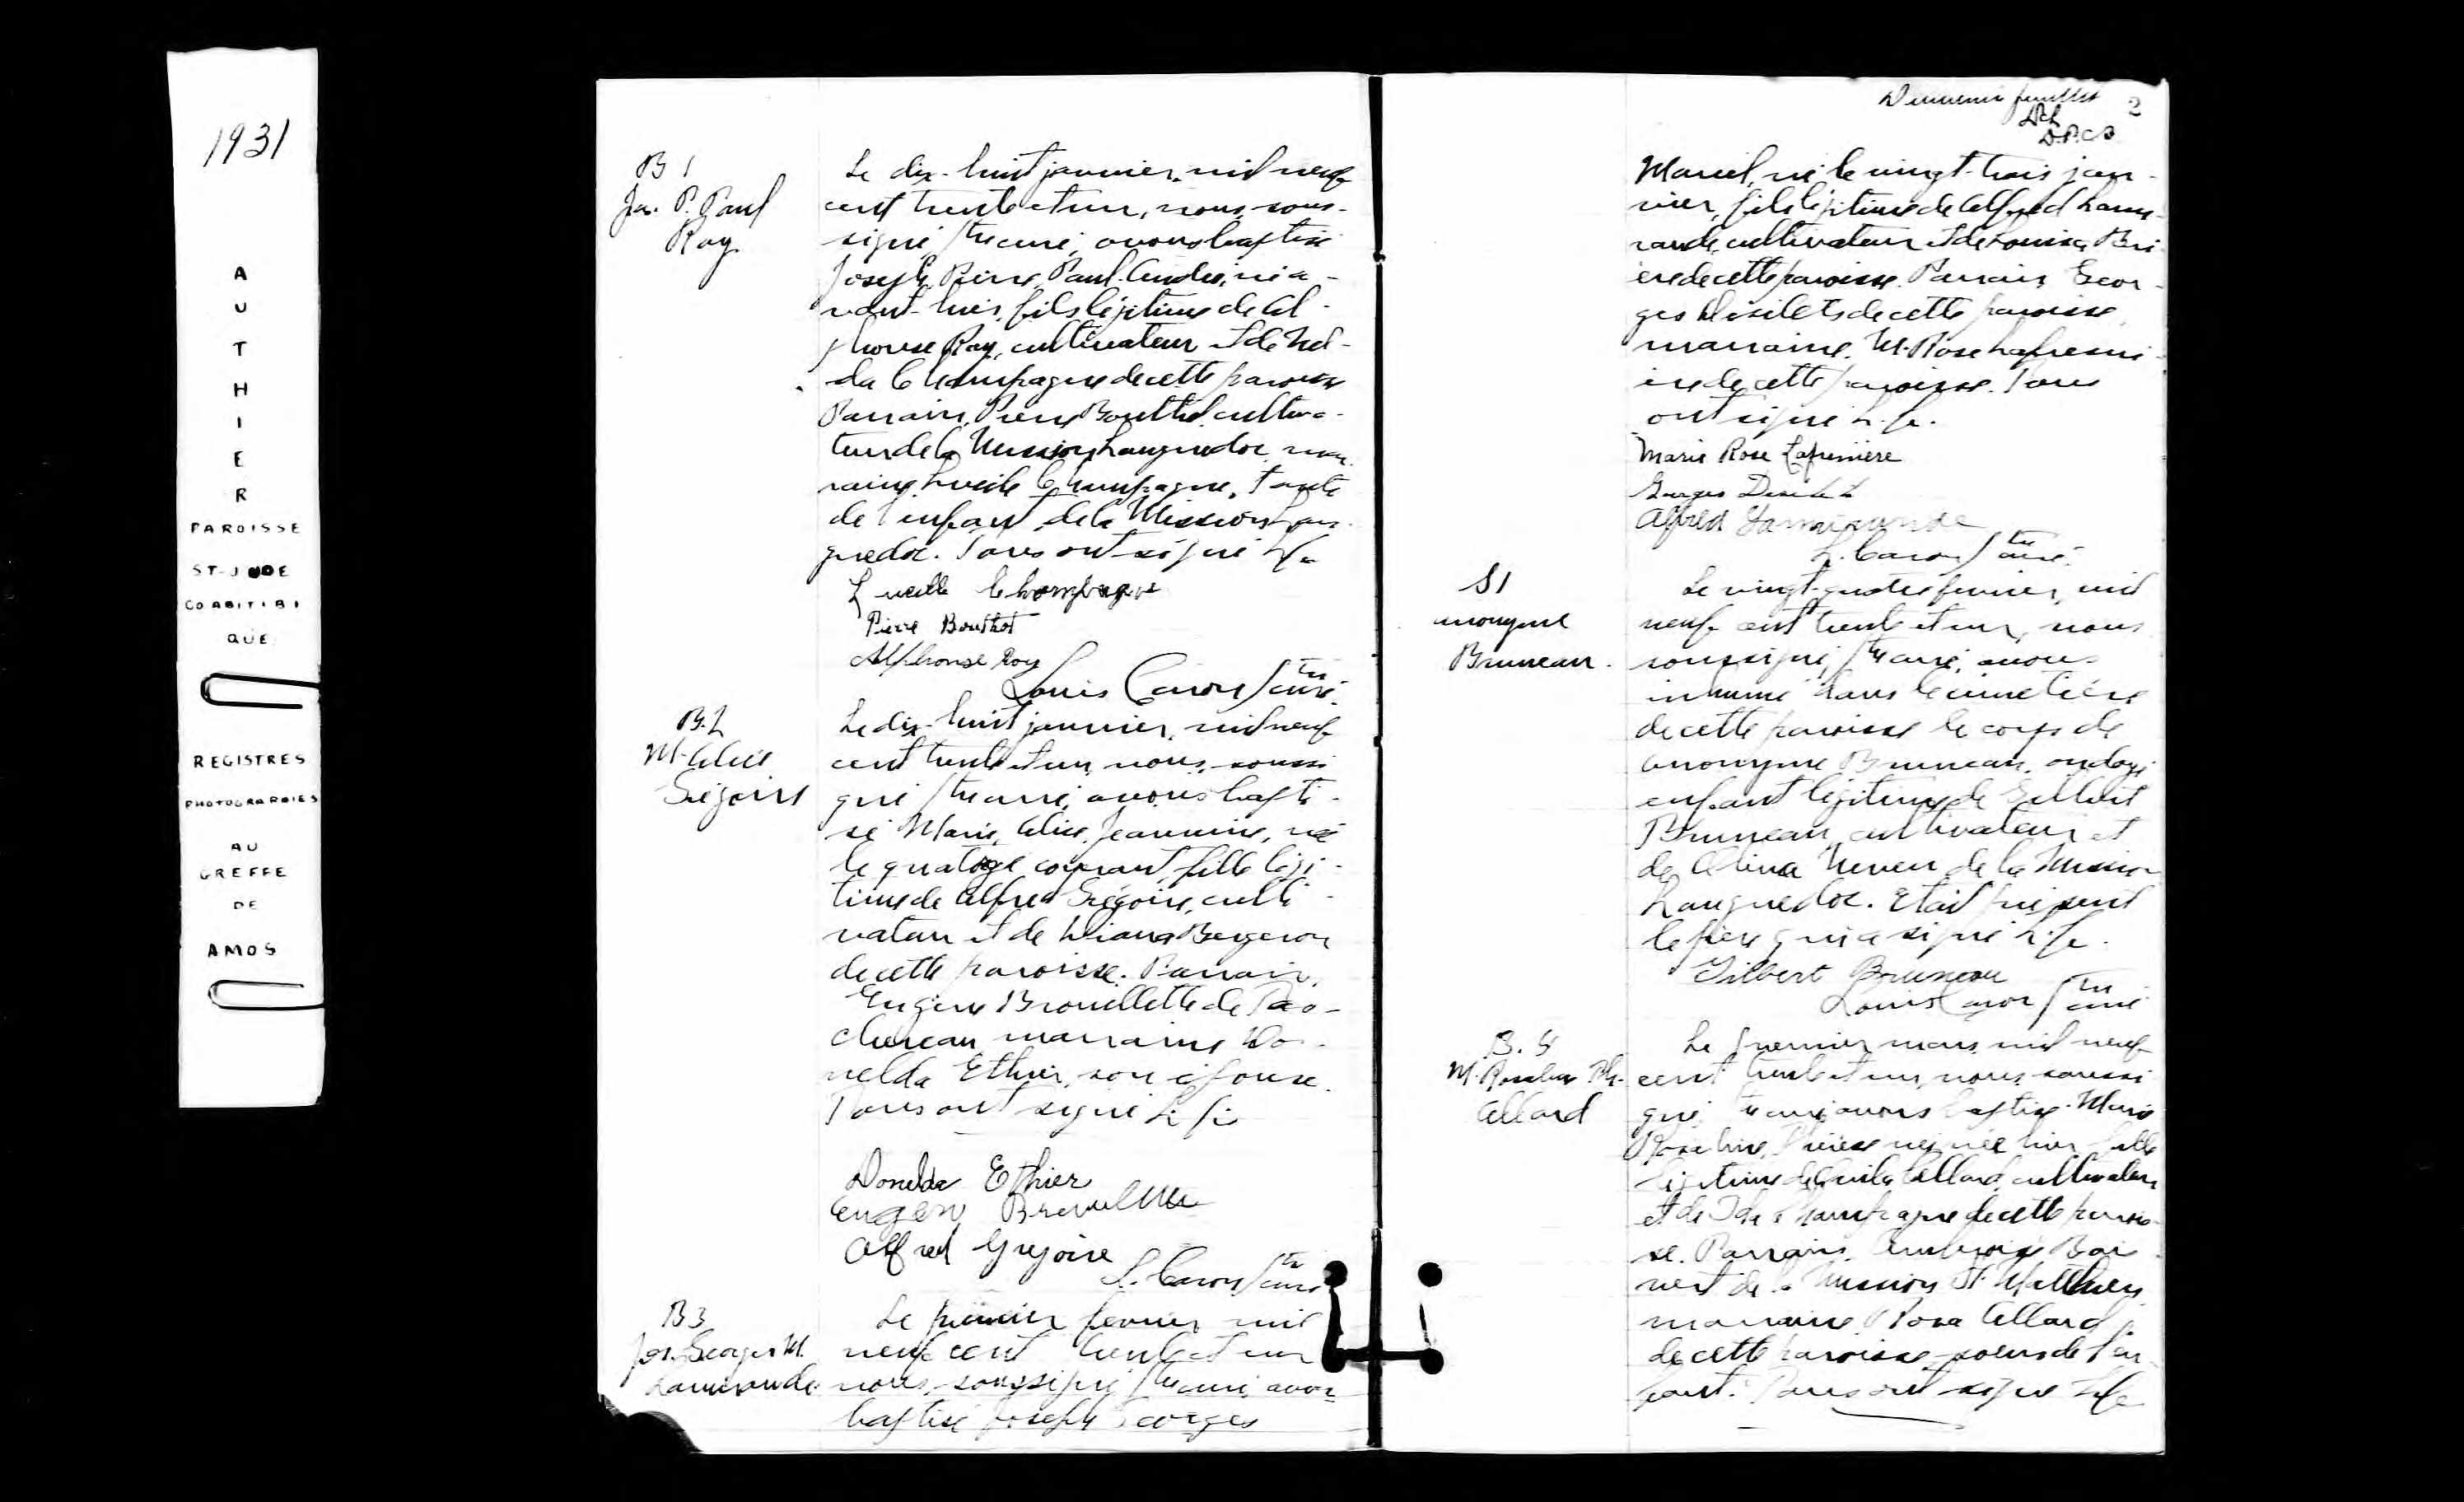 1931
A
U
T
H
I
E
R
PAROISSE
ST-JUDE
CO ABITIBI
QUE
REGISTRES
PHOTOGRAPHIES
AU
GREFFE
DE
AMOS
B 1
Jos. P. Paul
Roy
Le dix-huit janvier, mil neuf
cent trente et un, nous, sous-
signé, ptre curé, avons baptisé
Joseph, Pierre, Paul, né a-
vant-hier, fils légitime de Al-
phonse Roy, cultivateur et de
da Champagne de cette paroisse
Parrain, Pierre Bouthot, cultiva-
teur de la Mission Languedoc, mar-
raine, Lucile Champagne, tante
de l'enfant, de la Mission Lan-
guedoc. Tous ont signé L. f.
Lucille Champagne
Pierre Bouthot
Alphonse Roy
Louis Caron ptre curé.
B. 2
M. Alice
Grégoire
Le dix-huit janvier, mil neuf
cent trente et un, nous, soussi
gné ptre curé, avons bapti-
sé Marie, Alice, Jeannine, née
le quatorze courant, fille légi-
time de Alfred Grégoire, culti-
vateur et de Diana Bergeron
de cette paroisse. Parrain,
Eugène Brouillette de Tas-
chereau marraine Do-
nelda Ethier, son épouse.
Tous ont signé L. f.
Donelda Ethier
Eugene Brouillette
Alfred Gregoire
L. Caron ptre curé
B 3
Jos. Georges M.
Lamirande
Le premier fevrier mil
neuf cent trente et un
nous, soussigné ptre curé, avons
baptisé Joseph Georges
Deuxième feuillet 2
D.P.C.S
Marcel, né le vingt-trois jan-
vier, fils légitime de Alfred Lami-
rande, cultivateur et de Louisa Bri-
ère de cette paroisse. Parrain, Geor-
ges Désilets de cette paroisse,
marraine, M. Rose Lafreni-
ère de cette paroisse. Tous
ont signé L. f.
Marie Rose Lafrenière
Georges Desilets
Alfred Lamirande
L. Caron ptre curé.
S 1
anonyme
Bruneau
Le vingt-quatre fevrier, mil
neuf cent trente et un, nous
soussigné, ptre curé, avons
inhumé dans le cimetière
de cette paroisse le corps de
anonyme Bruneau, ondoyé
enfant légitime de Gilbert
Bruneau, cultivateur et
de Neveu de la Mission
Languedoc. Etait présent
le père qui a signé L. f.
Gilbert Bruneau
Louis Caron ptre curé
B. 4
M. Roseline Th.
Allard
Le premier mars mil neuf
cent trente et un, nous, soussi
gné, ptre curé avons baptisé Marie
Roseline, Thérèse née hier, fille
légitime de Allard, cultivateur
et de Ida Champagne de cette parois-
se. Parrain, Ambroise Boi-
vert de la Mission St. Matthieu
marraine, Rosa Allard
de cette paroisse, soeur de l'en
fant. Tous ont signé L. f.